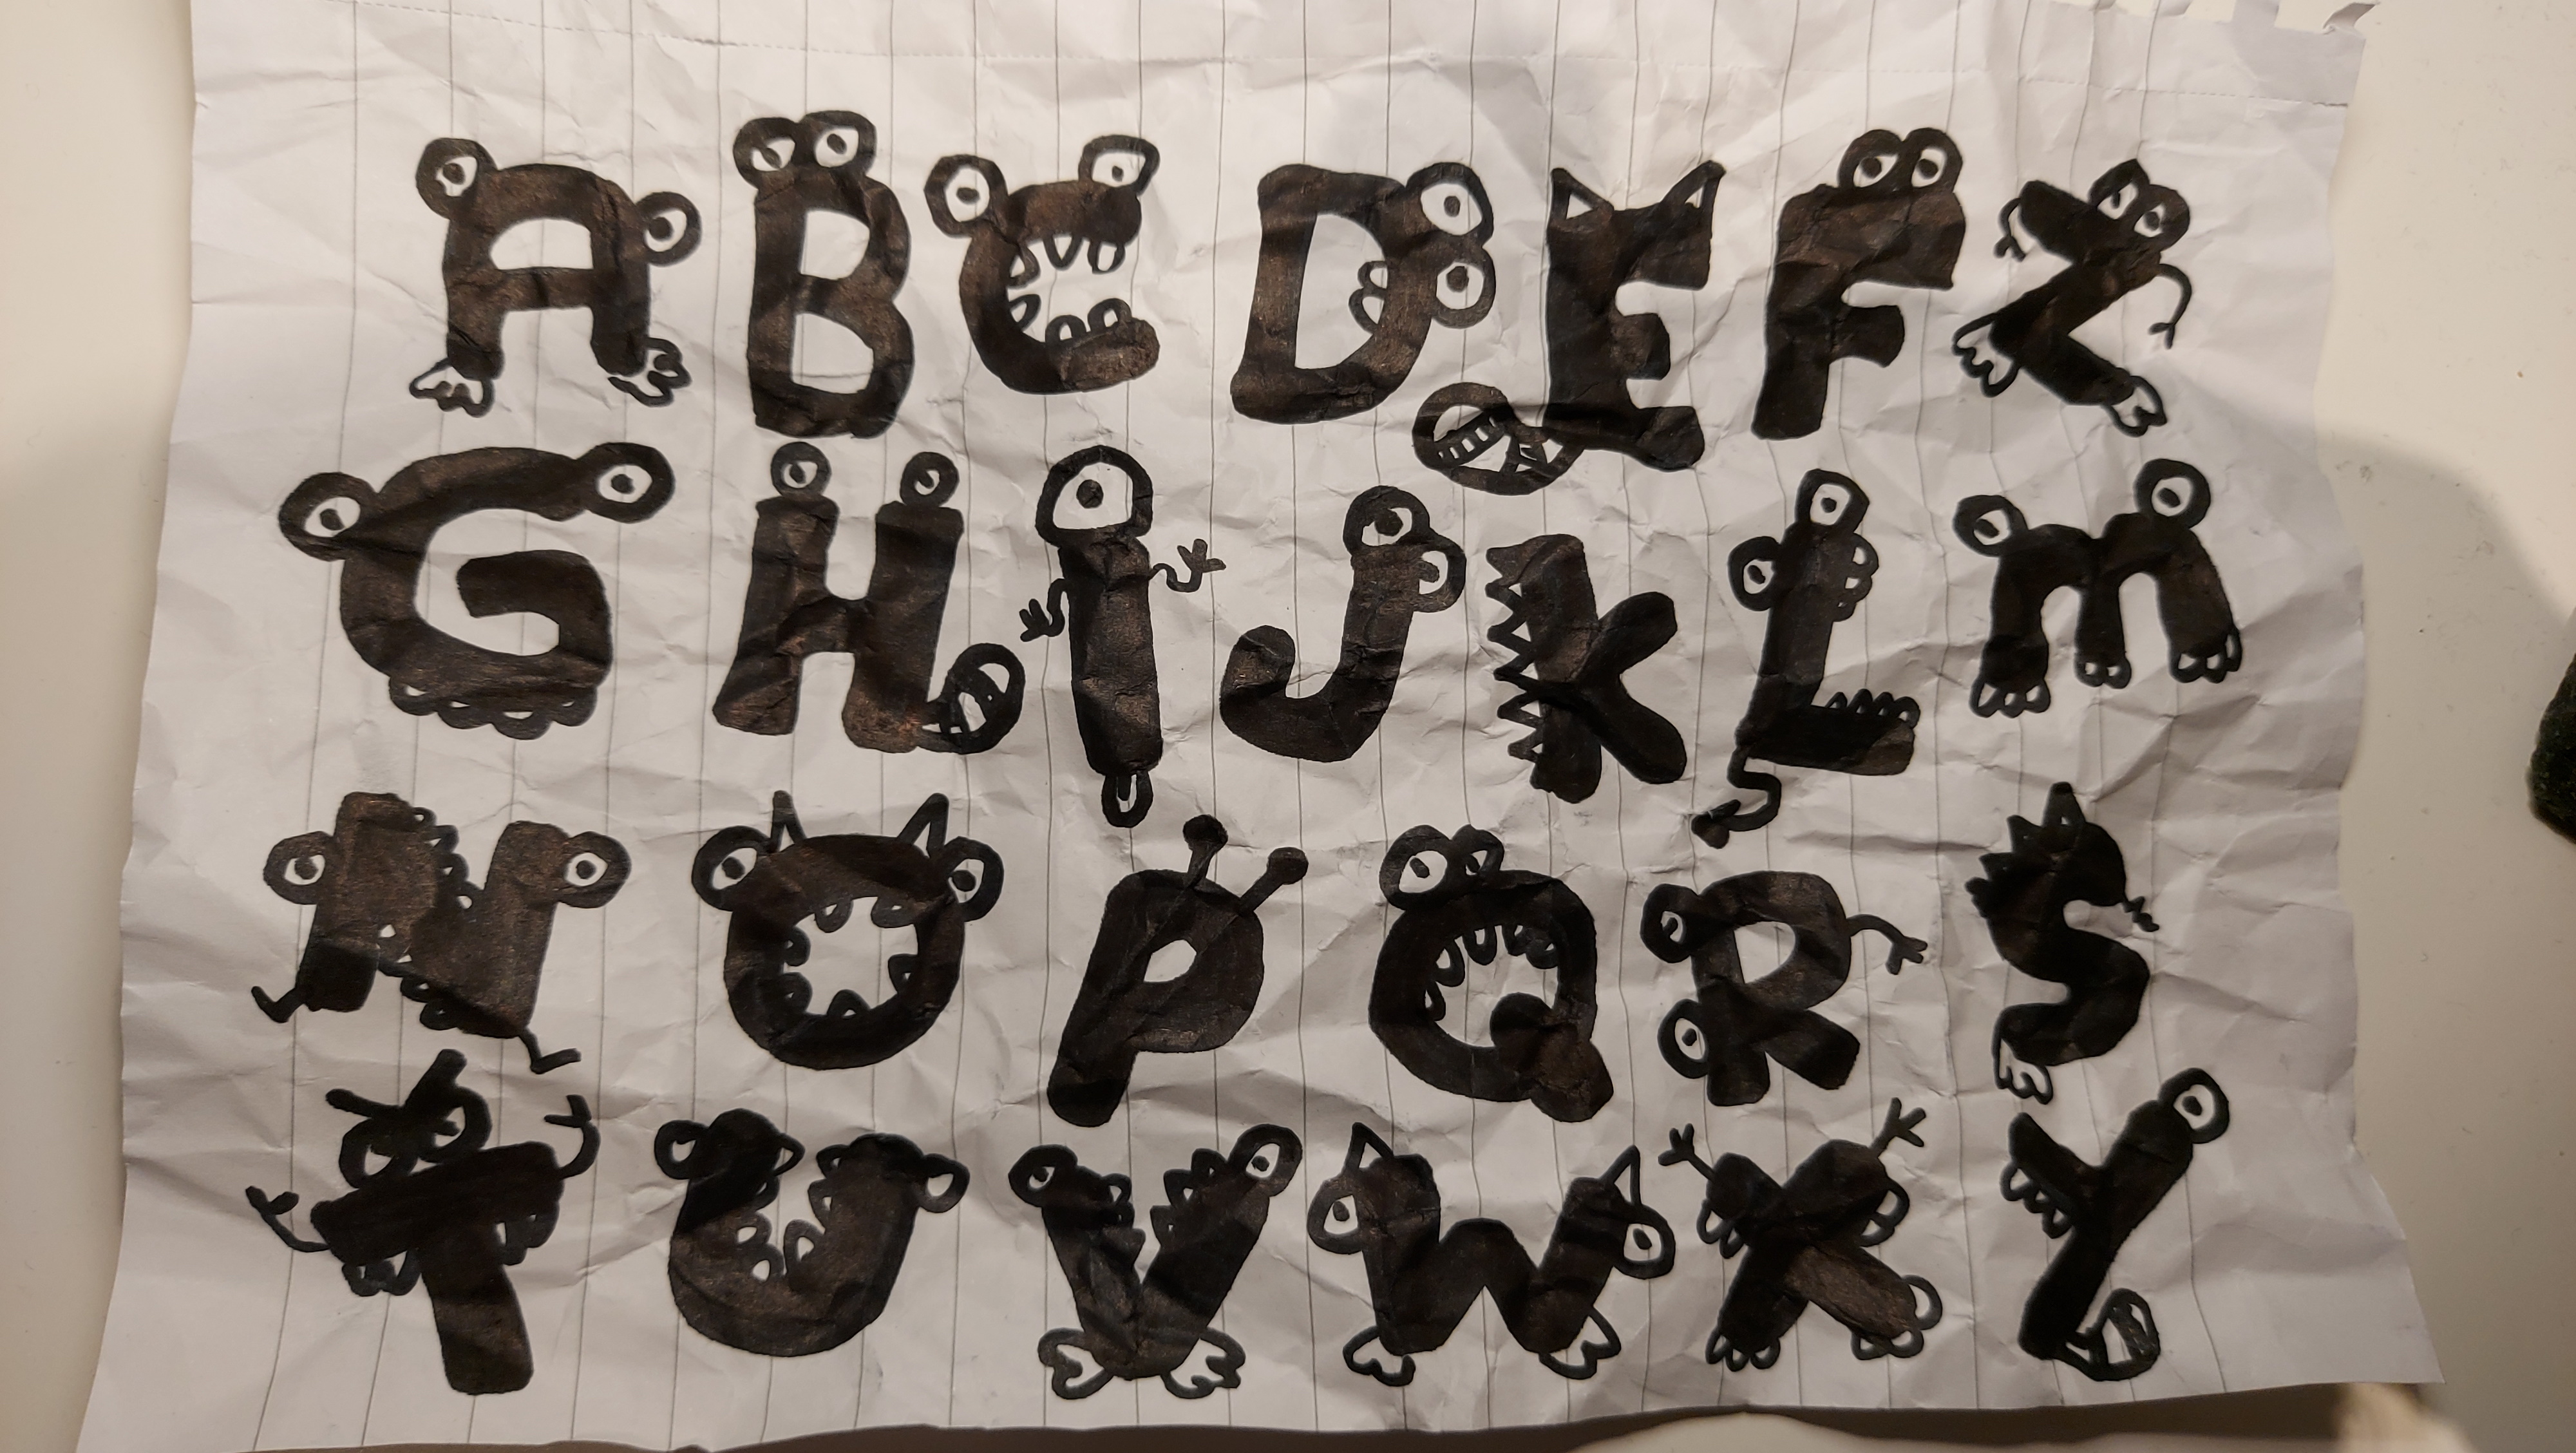 A B C D E F Z
G H I J K L M
N O P Q R S
T U V W X Y